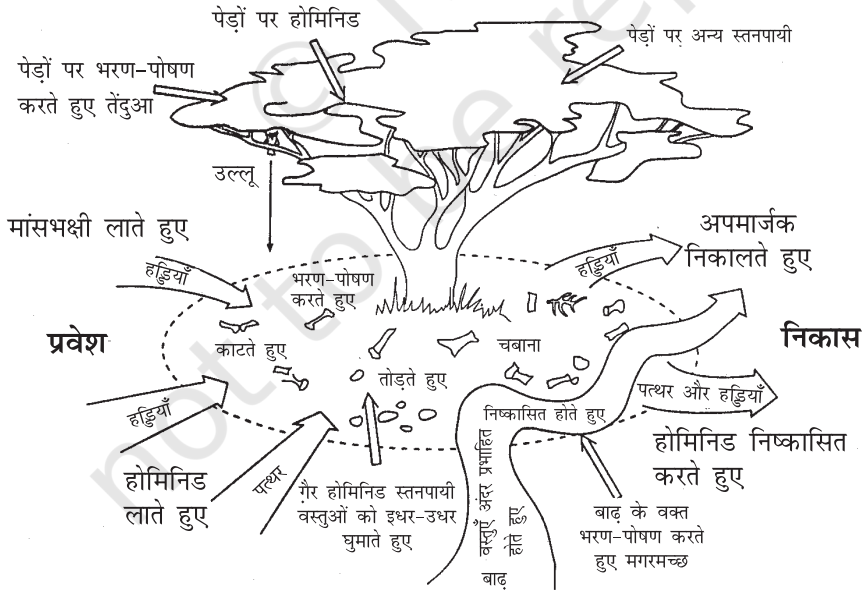 पेड़ों पर होमिनिड
पेड़ों पर अन्य स्तनपायी
पेड़ों पर भरण-पोषण
करते हुए तेंदुआ
उल्लू
मांसभक्षी लाते हुए
हड्डियाँ
अपमार्जक
निकालते हुए
हड्डियाँ
भरण-पोषण
करते हुए
प्रवेश
काटते हुए
चबाना
निकास
तोड़ते हुए
हड्डियाँ
निष्कासित होते हुए
पत्थर और हड्डियाँ
होमिनिड निष्कासित
करते हुए
होमिनिड
लाते हुए
पत्थर
ग़ैर होमिनिड स्तनपायी
वस्तुओं को इधर-उधर
घुमाते हुए
वस्तुएँ अंदर प्रभाहित
होते हुए
बाढ़
बाढ़ के वक्त
भरण-पोषण करते
हुए मगरमच्छ
not to be re
©